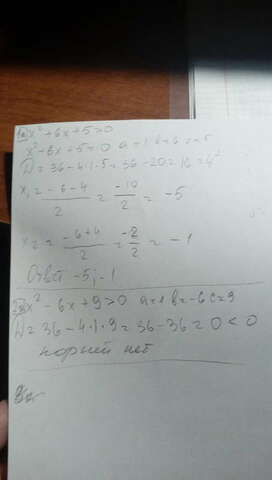 x² + 6x + 5 > 0
x² + 6x + 5 = 0 a = 1 b = 6 c = 5
D = 36 - 4·1·5 = 36 - 20 = 16 = 4²
x₁ = (-6-4)/2 = -10/2 = -5
x₂ = (-6+4)/2 = -2/2 = -1
Ответ -5; -1
x² - 6x + 9 > 0 a = 1 b = -6 c = 9
D = 36 - 4·1·9 = 36 - 36 = 0 < 0
корней нет